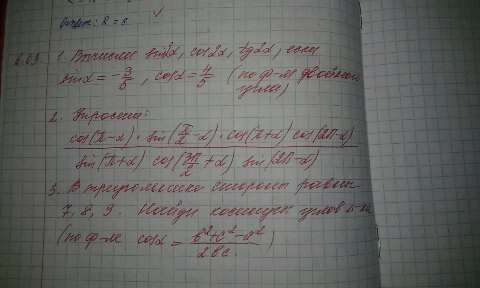 Ответ: R = 8
1. Вычисли sin2α, cos2α, tg2α, если
sinα = -3/5, cosα = 4/5 (по ф-ле двойного
угла)
2. Упрости:
cos(π-α) · sin(π/2 - α) · cos(π+α) cos(2π-α)
sin(π+α) cos(3π/2 + α) sin(2π-α)
3. В треугольнике стороны равны
7, 8, 9. Найди косинусы углов
(по ф-ле cosα = b²+c²-a² / 2bc)